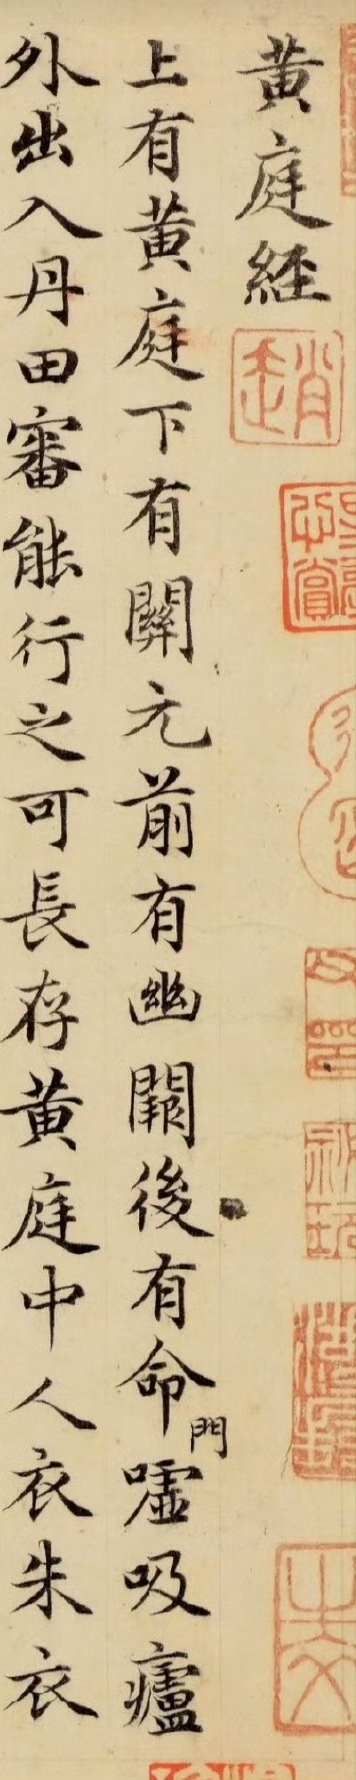 黃庭經
上有黃庭下有關元前有幽闕後有命門噓吸廬
外出入丹田審能行之可長存黃庭中人衣朱衣